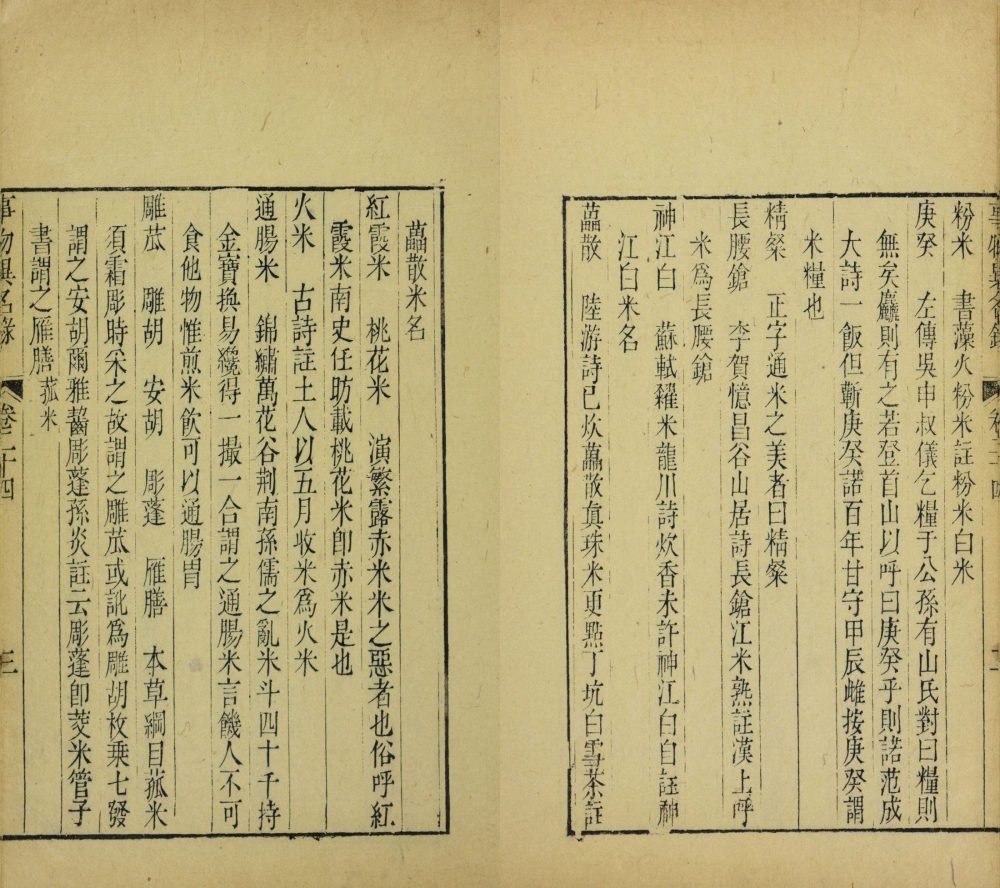 粉米　書藻火粉米註粉米白米
庚癸　左傳吳申叔儀乞糧于公孫有山氏對曰糧則
無矣麤則有之若登首山以呼曰庚癸乎則諾范成
大詩一飯但蘄庚癸諾百年甘守甲辰雌按庚癸謂
米糧也
精粲　正字通米之美者曰精粲
長腰鎗　李賀憶昌谷山居詩長鎗江米熟註漢上呼
米爲長腰鎗
神江白　蘇軾糴米龍川詩炊香未許神江白自註神
江白米名
藟散　陸游詩已炊藟散眞珠米更點丁坑白雪茶註
藟散米名
紅霞米　桃花米　演繁露赤米米之惡者也俗呼紅
霞米南史任昉載桃花米卽赤米是也
火米　古詩註土人以五月收米爲火米
通腸米　錦繡萬花谷荆南孫儒之亂米斗四十千持
金寶換易纔得一撮一合謂之通腸米言饑人不可
食他物惟煎米飲可以通腸胃
雕苽　雕胡　安胡　彫蓬　雁膳　本草綱目菰米
須霜彫時采之故謂之雕苽或訛爲雕胡枚乗七發
謂之安胡爾雅齧彫蓬孫炎註云彫蓬卽茭米管子
書謂之雁膳菰米
事物異名錄　卷二十四　三